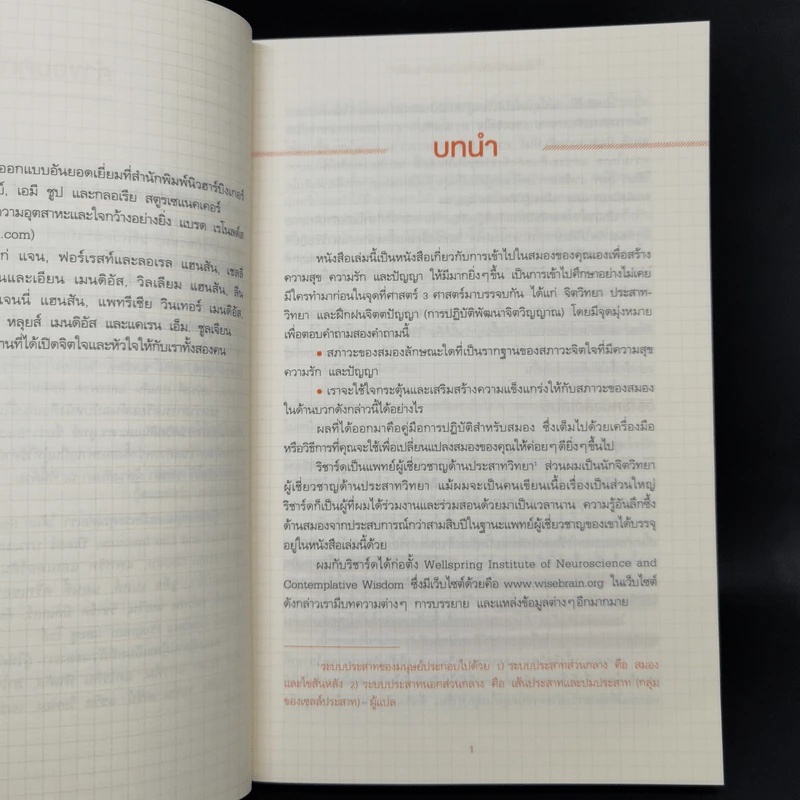 ออกแบบอันยอดเยี่ยมที่สำนักพิมพ์นิวฮาร์บิงเกอร์
เอมี ชูป และกลอเรีย สตูรเซแนคเคอร์
ความอุตสาหะและใจกว้างอย่างยิ่ง แบรด เรโนลด์ส
.com)
แก่ แจน, ฟอร์เรสท์และลอเรล แฮนสัน, เชลลี
นและเอียน เมนดิอัส, วิลเลียม แฮนสัน, ลิน
เจนนี่ แฮนสัน, แพทรีเซีย วินเทอร์ เมนดิอัส,
หลุยส์ เมนดิอัส และแคเรน เอ็ม. ชูลเจียน
านที่ได้เปิดจิตใจและหัวใจให้กับเราทั้งสองคน
บทนำ
หนังสือเล่มนี้เป็นหนังสือเกี่ยวกับการเข้าไปในสมองของคุณเองเพื่อสร้าง
ความสุข ความรัก และปัญญา ให้มีมากยิ่งๆขึ้น เป็นการเข้าไปศึกษาอย่างไม่เคย
มีใครทำมาก่อนในจุดที่ศาสตร์ 3 ศาสตร์มาบรรจบกัน ได้แก่ จิตวิทยา ประสาท-
วิทยา และฝึกฝนจิตตปัญญา (การปฏิบัติพัฒนาจิตวิญญาณ) โดยมีจุดมุ่งหมาย
เพื่อตอบคำถามสองคำถามนี้
• สภาวะของสมองลักษณะใดที่เป็นรากฐานของสภาวะจิตใจที่มีความสุข
ความรัก และปัญญา
• เราจะใช้ใจกระตุ้นและเสริมสร้างความแข็งแกร่งให้กับสภาวะของสมอง
ในด้านบวกดังกล่าวนี้ได้อย่างไร
ผลที่ได้ออกมาคือคู่มือการปฏิบัติสำหรับสมอง ซึ่งเต็มไปด้วยเครื่องมือ
หรือวิธีการที่คุณจะใช้เพื่อเปลี่ยนแปลงสมองของคุณให้ค่อยๆดียิ่งๆขึ้นไป
ริชาร์ดเป็นแพทย์ผู้เชี่ยวชาญด้านประสาทวิทยา¹ ส่วนผมเป็นนักจิตวิทยา
ผู้เชี่ยวชาญด้านประสาทวิทยา แม้ผมจะเป็นคนเขียนเนื้อเรื่องเป็นส่วนใหญ่
ริชาร์ดก็เป็นผู้ที่ผมได้ร่วมงานและร่วมสอนด้วยมาเป็นเวลานาน ความรู้อันลึกซึ้ง
ด้านสมองจากประสบการณ์กว่าสามสิบปีในฐานะแพทย์ผู้เชี่ยวชาญของเขาได้บรรจุ
อยู่ในหนังสือเล่มนี้ด้วย
ผมกับริชาร์ดได้ก่อตั้ง Wellspring Institute of Neuroscience and
Contemplative Wisdom ซึ่งมีเว็บไซต์ด้วยคือ www.wisebrain.org ในเว็บไซต์
ดังกล่าวเรามีบทความต่างๆ การบรรยาย และแหล่งข้อมูลต่างๆอีกมากมาย
¹ระบบประสาทของมนุษย์ประกอบไปด้วย 1) ระบบประสาทส่วนกลาง คือ สมอง
และไขสันหลัง 2) ระบบประสาทนอกส่วนกลาง คือ เส้นประสาทและปมประสาท (กลุ่ม
ของเซลล์ประสาท) – ผู้แปล
1